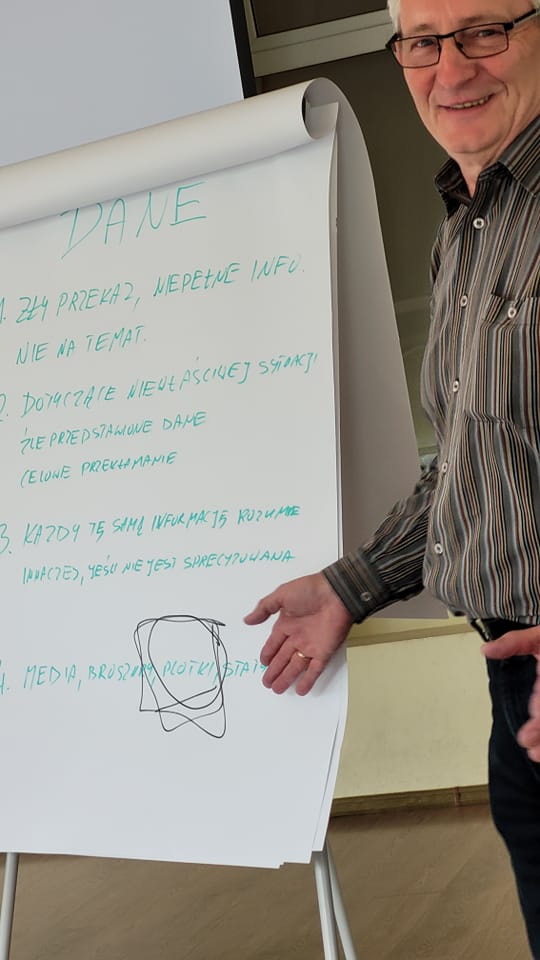 DANE
1. ZŁY PRZEKAZ, NIEPEŁNE INFO.
NIE NA TEMAT.
2. DOTYCZĄCE NIEWŁAŚCIWEJ SYTUACJI
ŹLE PRZEDSTAWIONE DANE
CELOWE PRZEKŁAMANIE
3. KAŻDY TĘ SAMĄ INFORMACJĘ ROZUMIE
INACZEJ, JEŚLI NIE JEST SPRECYZOWANA
4. MEDIA, BROSZURY, PLOTKI,